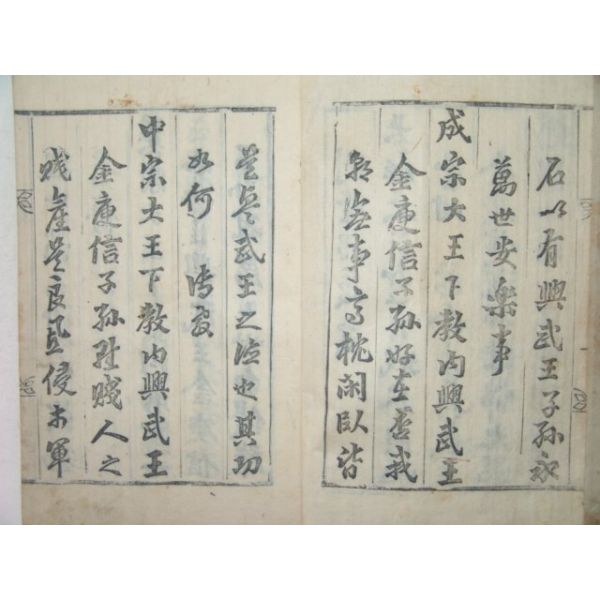 石以有興武王子孫永
萬世安樂事
成宗大王下教內興武王
金庾信子孫好在否我
朝 事高枕閑臥皆
是興武王之德也其功
如何 傳敎
中宗大王下教內興武王
金庾信子孫雖賤人之
賤產是良 侵束軍